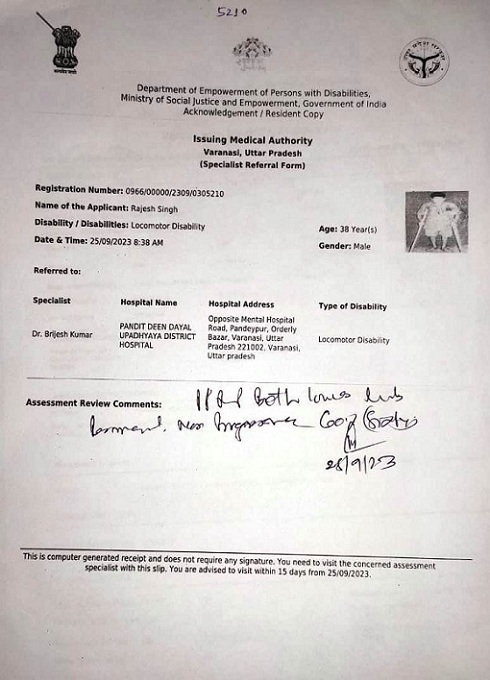 5210
Department of Empowerment of Persons with Disabilities,
Ministry of Social Justice and Empowerment, Government of India
Acknowledgement / Resident Copy
Issuing Medical Authority
Varanasi, Uttar Pradesh
(Specialist Referral Form)
Registration Number: 0966/00000/2309/0305210
Name of the Applicant: Rajesh Singh
Disability / Disabilities: Locomotor Disability
Age: 38 Year(s)
Date & Time: 25/09/2023 8:38 AM
Gender: Male
Referred to:
Specialist Hospital Name Hospital Address Type of Disability
Dr. Brijesh Kumar
PANDIT DEEN DAYAL
UPADHYAYA DISTRICT
HOSPITAL
Opposite Mental Hospital
Road, Pandeypur, Orderly
Bazar, Varanasi, Uttar
Pradesh 221002, Varanasi,
Uttar pradesh
Locomotor Disability
Assessment Review Comments: Both lower limb
60%
25/9/23
This is computer generated receipt and does not require any signature. You need to visit the concerned assessment
specialist with this slip. You are advised to visit within 15 days from 25/09/2023.